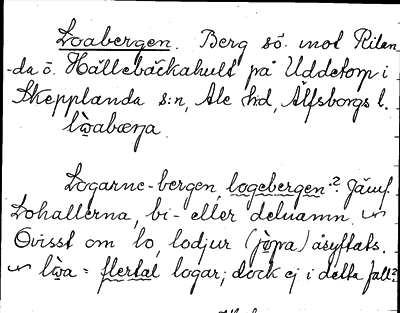 Loabergen. Berg sö. mot Rilen
-da ö. Hällebäckahult på Uddetorp i
Skepplanda s:n, Ale hd, Älfsborgs l.
lòabærja.
Logarne-bergen, logebergen? Jämf.
Lohallerna, bi- eller delnamn.
Ovisst om lo, lodjur (jòpa) åsyftats.
lòa = flertal logar; dock ej i detta fall?